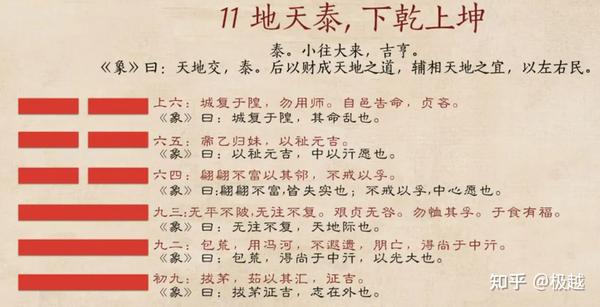 11 地天泰，下乾上坤
泰。小往大来，吉亨。
《象》曰：天地交，泰。后以财成天地之道，辅相天地之宜，以左右民。
上六：城复于隍，勿用师。自邑告命，贞吝。
《象》曰：城复于隍，其命乱也。
六五：帝乙归妹，以祉元吉。
《象》曰：以祉元吉，中以行愿也。
六四：翩翩不富以其邻，不戒以孚。
《象》曰：翩翩不富，皆失实也；不戒以孚，中心愿也。
九三：无平不陂，无往不复。艰贞无咎。勿恤其孚。于食有福。
《象》曰：无往不复，天地际也。
九二：包荒，用冯河，不遐遗，朋亡，得尚于中行。
《象》曰：包荒，得尚于中行，以光大也。
初九：拔茅，茹以其汇，征吉。
《象》曰：拔茅征吉，志在外也。
知乎 @极越